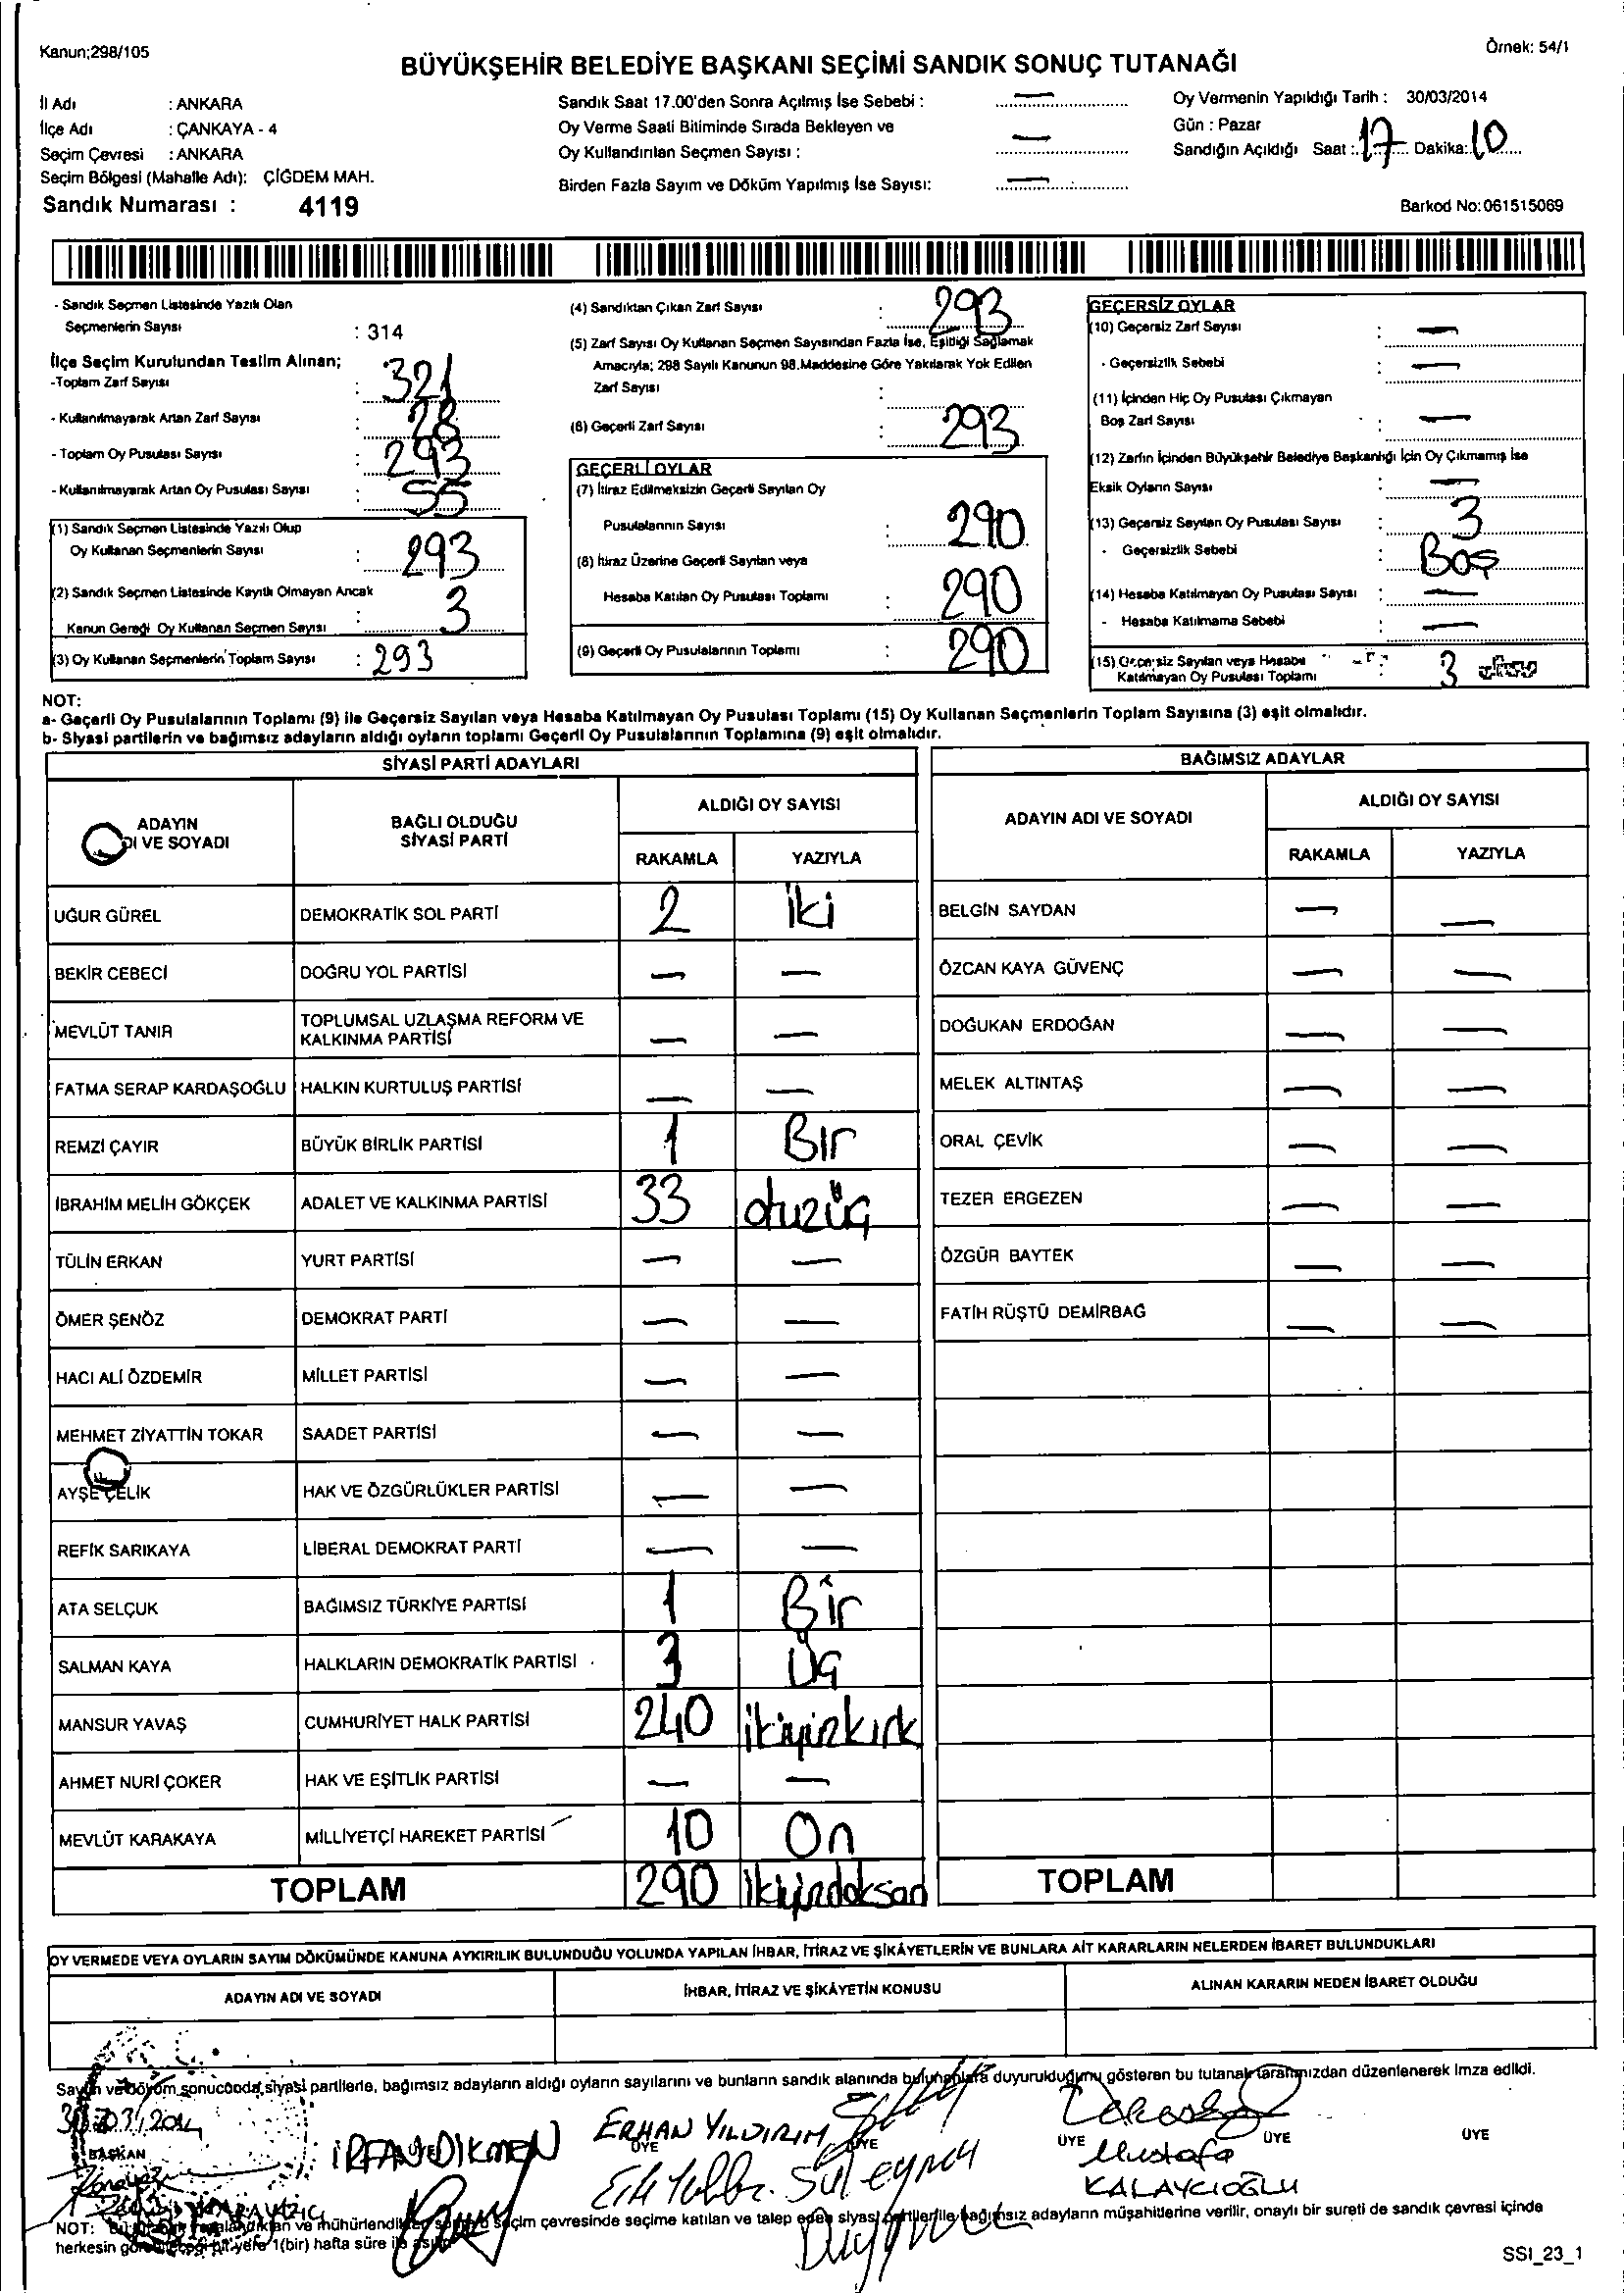 Kanun;298/105
Örnek: 54/1
BÜYÜKŞEHİR BELEDİYE BAŞKANI SEÇİMİ SANDIK SONUÇ TUTANAĞI
İl Adı : ANKARA
İlçe Adı : ÇANKAYA - 4
Seçim Çevresi : ANKARA
Seçim Bölgesi (Mahalle Adı): ÇİĞDEM MAH.
Sandık Numarası : 4119
Sandık Saat 17.00'den Sonra Açılmış İse Sebebi : —
Oy Verme Saati Bitiminde Sırada Bekleyen ve
Oy Kullandırılan Seçmen Sayısı : —
Birden Fazla Sayım ve Döküm Yapılmış İse Sayısı: —
Oy Vermenin Yapıldığı Tarih : 30/03/2014
Gün : Pazar
Sandığın Açıldığı Saat : 17 Dakika: 10
Barkod No:061515069
- Sandık Seçmen Listesinde Yazılı Olan
Seçmenlerin Sayısı : 314
İlçe Seçim Kurulundan Teslim Alınan;
-Toplam Zarf Sayısı : 321
- Kullanılmayarak Artan Zarf Sayısı : 28
- Toplam Oy Pusulası Sayısı : 293
- Kullanılmayarak Artan Oy Pusulası Sayısı : 55
(1) Sandık Seçmen Listesinde Yazılı Olup
Oy Kullanan Seçmenlerin Sayısı : 293
(2) Sandık Seçmen Listesinde Kayıtlı Olmayan Ancak
Kanun Gereği Oy Kullanan Seçmen Sayısı : 3
(3) Oy Kullanan Seçmenlerin Toplam Sayısı : 293
(4) Sandıktan Çıkan Zarf Sayısı : 293
(5) Zarf Sayısı Oy Kullanan Seçmen Sayısından Fazla İse, Eşitliği Sağlamak
Amacıyla; 298 Sayılı Kanunun 98.Maddesine Göre Yakılarak Yok Edilen
Zarf Sayısı :
(6) Geçerli Zarf Sayısı : 293
GEÇERLİ OYLAR
(7) İtiraz Edilmeksizin Geçerli Sayılan Oy
Pusulalarının Sayısı : 290
(8) İtiraz Üzerine Geçerli Sayılan veya
Hesaba Katılan Oy Pusulası Toplamı : 290
(9) Geçerli Oy Pusulalarının Toplamı : 290
GEÇERSİZ OYLAR
(10) Geçersiz Zarf Sayısı : —
- Geçersizlik Sebebi : —
(11) İçinden Hiç Oy Pusulası Çıkmayan
Boş Zarf Sayısı : —
(12) Zarfın İçinden Büyükşehir Belediye Başkanlığı İçin Oy Çıkmamış İse
Eksik Oyların Sayısı : —
(13) Geçersiz Sayılan Oy Pusulası Sayısı : 3
- Geçersizlik Sebebi : Boş
(14) Hesaba Katılmayan Oy Pusulası Sayısı : —
- Hesaba Katılmama Sebebi : —
(15) Geçersiz Sayılan veya Hesaba
Katılmayan Oy Pusulası Toplamı : 3
NOT:
a- Geçerli Oy Pusulalarının Toplamı (9) ile Geçersiz Sayılan veya Hesaba Katılmayan Oy Pusulası Toplamı (15) Oy Kullanan Seçmenlerin Toplam Sayısına (3) eşit olmalıdır.
b- Siyasi partilerin ve bağımsız adayların aldığı oyların toplamı Geçerli Oy Pusulalarının Toplamına (9) eşit olmalıdır.
SİYASİ PARTİ ADAYLARI
ADAYIN DI VE SOYADI
BAĞLI OLDUĞU SİYASİ PARTİ
ALDIĞI OY SAYISI
RAKAMLA YAZIYLA
UĞUR GÜREL DEMOKRATİK SOL PARTİ 2 iki
BEKİR CEBECİ DOĞRU YOL PARTİSİ — —
MEVLÜT TANIR TOPLUMSAL UZLAŞMA REFORM VE KALKINMA PARTİSİ — —
FATMA SERAP KARDAŞOĞLU HALKIN KURTULUŞ PARTİSİ — —
REMZİ ÇAYIR BÜYÜK BİRLİK PARTİSİ 1 Bir
İBRAHİM MELİH GÖKÇEK ADALET VE KALKINMA PARTİSİ 33 otuzüç
TÜLİN ERKAN YURT PARTİSİ — —
ÖMER ŞENÖZ DEMOKRAT PARTİ — —
HACI ALİ ÖZDEMİR MİLLET PARTİSİ — —
MEHMET ZİYATTİN TOKAR SAADET PARTİSİ — —
AYŞE ÇELİK HAK VE ÖZGÜRLÜKLER PARTİSİ — —
REFİK SARIKAYA LİBERAL DEMOKRAT PARTİ — —
ATA SELÇUK BAĞIMSIZ TÜRKİYE PARTİSİ 1 Bir
SALMAN KAYA HALKLARIN DEMOKRATİK PARTİSİ 3 Üç
MANSUR YAVAŞ CUMHURİYET HALK PARTİSİ 240 ikiyüzkırk
AHMET NURİ ÇOKER HAK VE EŞİTLİK PARTİSİ — —
MEVLÜT KARAKAYA MİLLİYETÇİ HAREKET PARTİSİ 10 On
TOPLAM 290 ikiyüzdoksan
BAĞIMSIZ ADAYLAR
ADAYIN ADI VE SOYADI
ALDIĞI OY SAYISI
RAKAMLA YAZIYLA
BELGİN SAYDAN — —
ÖZCAN KAYA GÜVENÇ — —
DOĞUKAN ERDOĞAN — —
MELEK ALTINTAŞ — —
ORAL ÇEVİK — —
TEZER ERGEZEN — —
ÖZGÜR BAYTEK — —
FATİH RÜŞTÜ DEMİRBAĞ — —
TOPLAM
OY VERMEDE VEYA OYLARIN SAYIM DÖKÜMÜNDE KANUNA AYKIRILIK BULUNDUĞU YOLUNDA YAPILAN İHBAR, İTİRAZ VE ŞİKÂYETLERİN VE BUNLARA AİT KARARLARIN NELERDEN İBARET BULUNDUKLARI
ADAYIN ADI VE SOYADI
İHBAR, İTİRAZ VE ŞİKÂYETİN KONUSU
ALINAN KARARIN NEDEN İBARET OLDUĞU
Sayım ve döküm sonucunda, siyasi partilerle, bağımsız adayların aldığı oyların sayılarını ve bunların sandık alanında bulunanlara duyurulduğunu gösteren bu tutanak tarafımızdan düzenlenerek imza edildi.
30/03/2014
BAŞKAN
ÜYE
İRFAN DİKMEN
ERHAN YILDIRIM
ÜYE
ÜYE
ÜYE
ÜYE
ÜYE
Mustafa
KALAYCIOĞLU
NOT: seçim çevresinde seçime katılan ve talep eden siyasi partilerle bağımsız adayların müşahitlerine verilir, onaylı bir sureti de sandık çevresi içinde
herkesin 1(bir) hafta süre ile
SSI_23_1